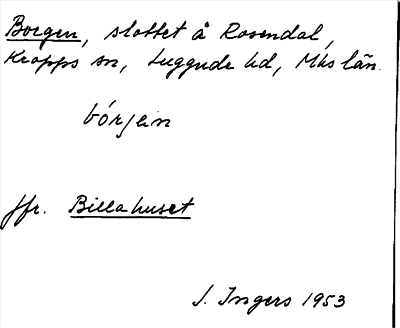 Borgen, slottet å Rosendal,
Kropps sn, Luggude hd, Mhs län.
bórjein
jfr. Billahuset
I. Ingers 1953